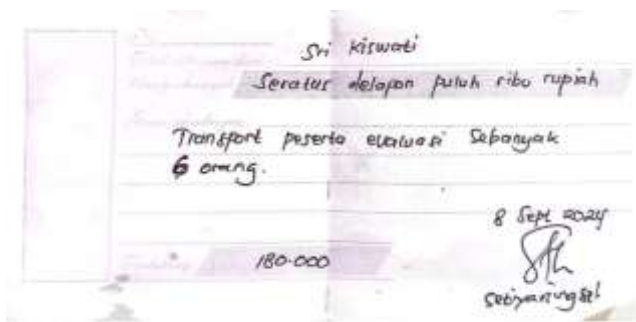 Sri Kiswati
Seratus delapan puluh ribu rupiah
Transport peserta evaluasi Sebanyak
6 orang.
8 Sept 2024
180.000